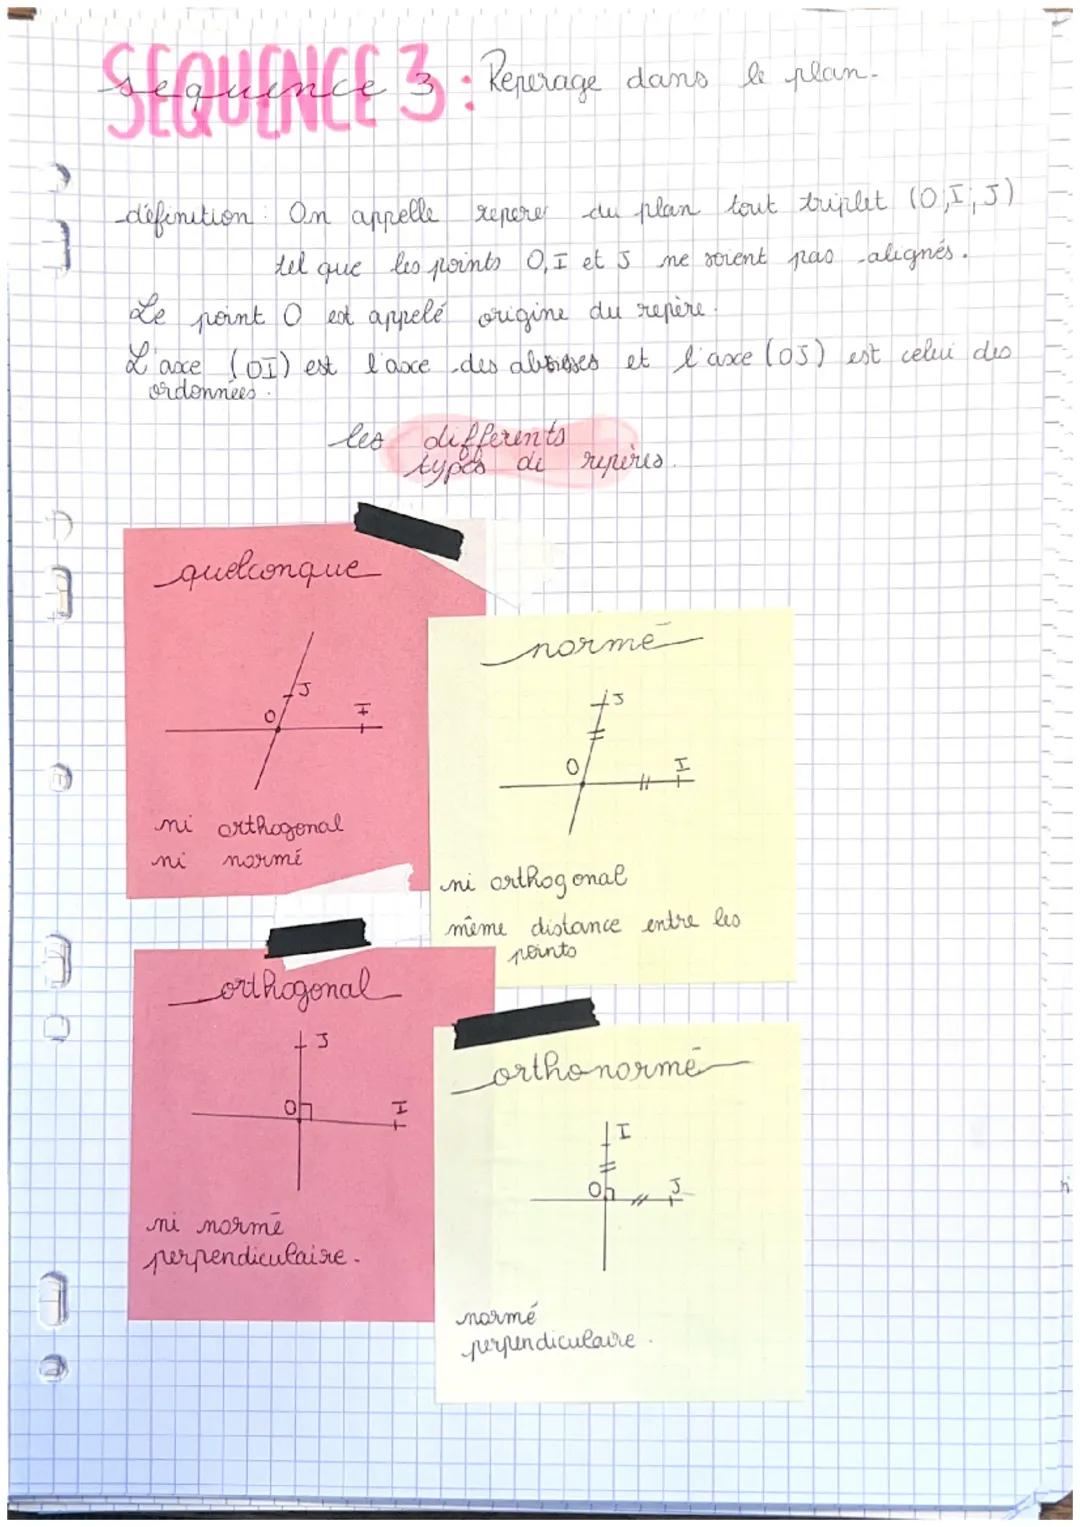 SEQUENCE 3 : Reperage dans le plan.
sequence
définition : On appelle reperer du plan tout triplet (O;I;J)
tel que les points O, I et J ne soient pas alignés.
Le point O est appelé origine du repère.
L'axe (OI) est l'axe des abscisses et l'axe (OJ) est celui des
ordonnées.
les differents
types de repères.
quelconque
J
O I
ni orthogonal
ni normé
normé
J
O I
ni orthogonal
même distance entre les
points
orthogonal
J
O I
ni normé
perpendiculaire.
orthonormé
I
O J
normé
perpendiculaire.